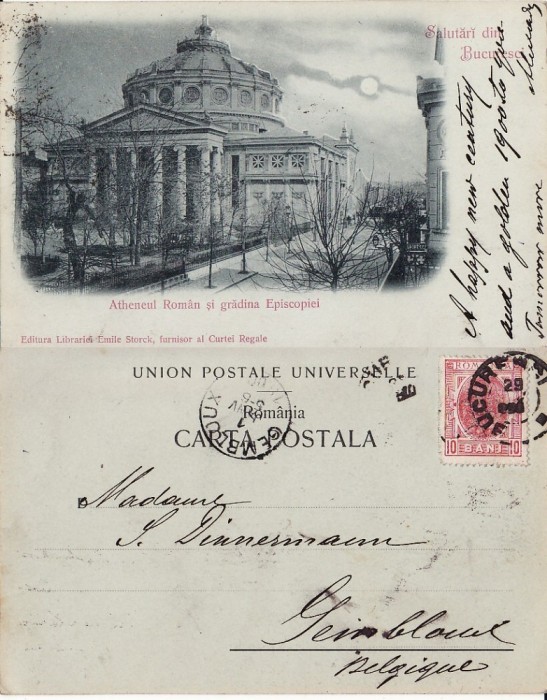 Salutări din
Bucuresci
A happy new century
and a golden 1900 to you
Tomorrow more
Atheneul Român și grădina Episcopiei
Editura Librariei Emile Storck, furnisor al Curtei Regale
UNION POSTALE UNIVERSELLE
România
CARTA POSTALA
GEMBLOUX
ROMANIA
10 BANI 10
BUCURESCI
29
Madame
S. Dinnermann
Gembloux
Belgique